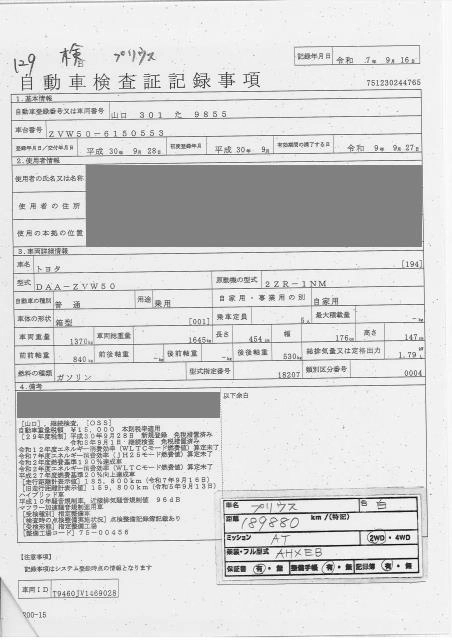 129 検 プリウス
記録年月日 令和 7年 9月16日
自動車検査証記録事項
751230244765
1.基本情報
自動車登録番号又は車両番号 山口 301 た 9855
車台番号 ZVW50-6150553
登録年月日/交付年月日 平成 30年 9月 28日 初度登録年月 平成 30年 9月 有効期間の満了する日 令和 9年 9月27日
2.使用者情報
使用者の氏名又は名称
使用者の住所
使用の本拠の位置
3.車両詳細情報
車名 トヨタ [194]
型式 DAA-ZVW50 原動機の型式 2ZR-1NM
自動車の種別 普通 用途 乗用 自家用・事業用の別 自家用
車体の形状 箱型 [001] 乗車定員 5人 最大積載量 -kg
車両重量 1370kg 車両総重量 1645kg 長さ 454cm 幅 176cm 高さ 147cm
前前軸重 840kg 前後軸重 -kg 後前軸重 -kg 後後軸重 530kg 総排気量又は定格出力 1.79L
燃料の種類 ガソリン 型式指定番号 18207 類別区分番号 0004
4.備考
以下余白
[山口],継続検査,[OSS]
自動車重量税額 ¥15,000 本則税率適用
[29年度税制]平成30年9月28日 新規登録 免税措置済み
令和3年9月1日 継続検査 免税措置済み
令和12年度エネルギー消費効率(WLTCモード燃費値)算定未了
令和2年度エネルギー消費効率(JH25モード燃費値)算定未了
令和2年度燃費基準190%達成車
令和2年度エネルギー消費効率(WLTCモード燃費値)算定未了
平成27年度燃費基準20%向上達成車
[走行距離計表示値]185,800km(令和7年9月16日)
[旧走行距離計表示値]159,800km(令和5年9月13日)
ハイブリッド車
平成10年騒音規制車,近接排気騒音規制値 96dB
マフラー加速騒音規制適用車
[受検種別]指定整備車
[検査時の点検整備実施状況]点検整備記録簿記載あり
[受検形態]指定整備工場
[整備工場コード]75-00456
車名 プリウス 色 白
距離 189880 km/(特記)
ミッション AT 2WD・4WD
架装・フル型式 AHXEB
保証書 有・無 整備手帳 有・無 記録簿 有・無
[注意事項]
記録事項はシステム登録時点の情報となります
車両ID T9460JV1469028
200-15